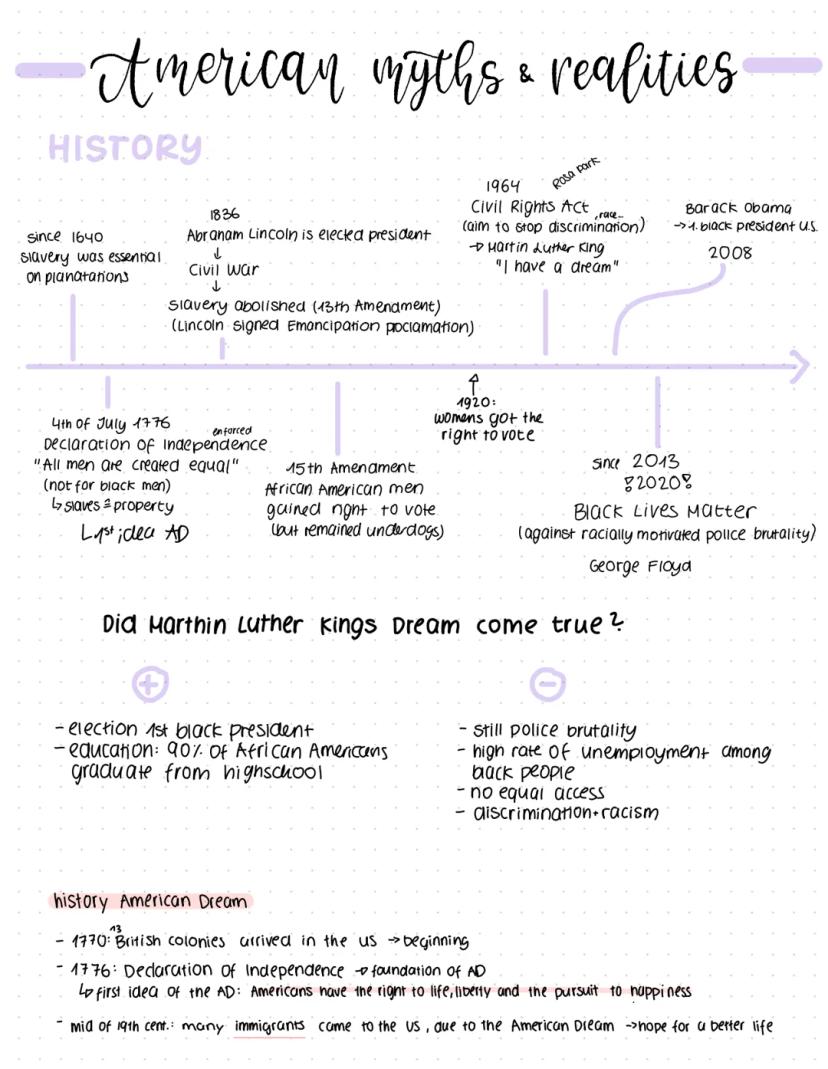 American myths & realities
HISTORY
since 1640
slavery was essential
on planatations
1836
Abranam Lincoln is elected president
↓
Civil War
↓
Slavery abolished (13th Amendment)
(Lincoln signed Emancipation proclamation)
1964
Rosa park
Civil Rights Act
race
(aim to stop discrimination)
→ Martin Luther King
"I have a dream"
Barack Obama
→ 1. black president U.S.
2008
4th of July 1776
enforced
Declaration of Independence
"All men are created equal"
(not for black men)
↳ slaves ≙ property
↳ 1st idea AD
15th Amendment
African American men
gained right to vote
(but remained underdogs)
↑
1920:
womens got the
right to vote
since 2013
!2020!
Black Lives Matter
(against racially motivated police brutality)
George Floyd
Did Marthin Luther Kings Dream come true?
+
-
- election 1st black president
- education: 90% of African Americans
graduate from highschool
- still police brutality
- high rate of unemployment among
black people
- no equal access
- discrimination + racism
history American Dream
13
- 1770: British colonies arrived in the US → beginning
- 1776: Declaration of Independence → foundation of AD
↳ first idea of the AD: Americans have the right to life, liberty and the pursuit to happiness
- mid of 19th cent.: many immigrants came to the US, due to the American Dream → hope for a better life